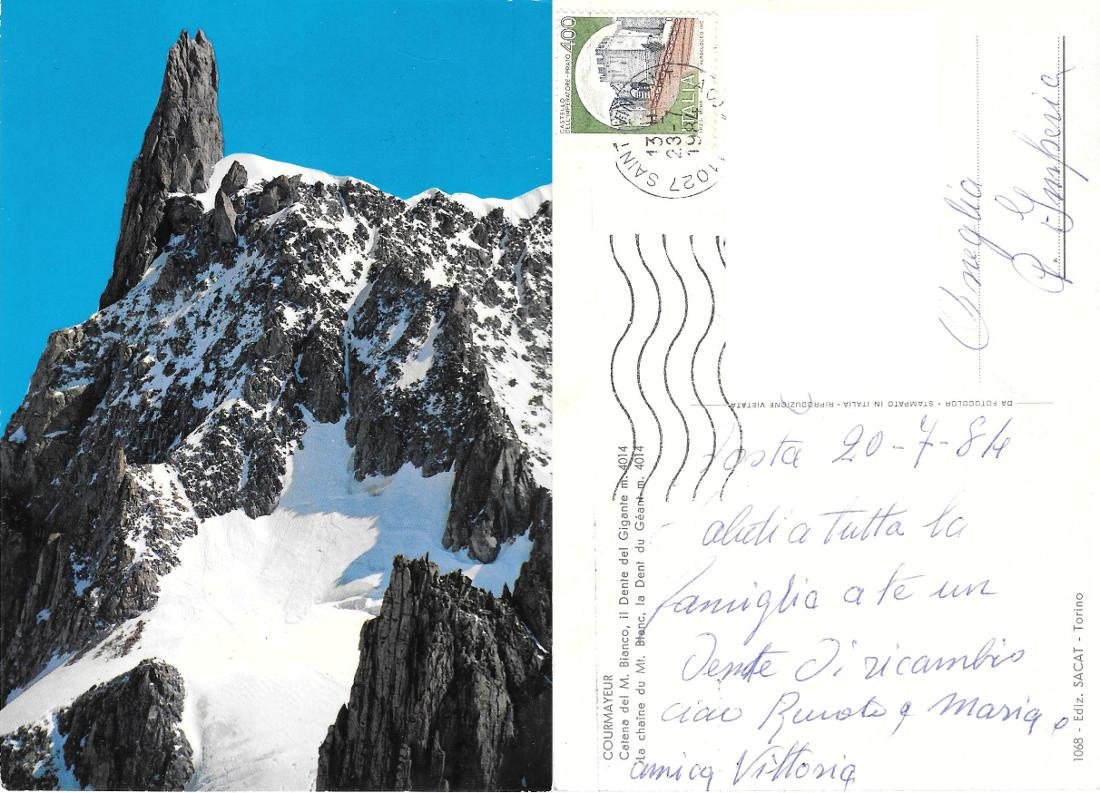 CASTELLO
DELL'IMPERATORE - PRATO
400
ITALIA
11027 SAINT VINCENT
13
23-7
1984
Oneglia
P. i Imperia
DA FOTOCOLOR • STAMPATO IN ITALIA • RIPRODUZIONE VIETATA
Aosta 20-7-84
aluti a tutta la
famiglia a te un
Dente Di ricambio
ciao Renato e Maria e
amica Vittoria
COURMAYEUR
Catena del M. Bianco, il Dente del Gigante m. 4014
La chaîne du Mt. Blanc, la Dent du Géant m. 4014
1068 - Ediz. SACAT - Torino